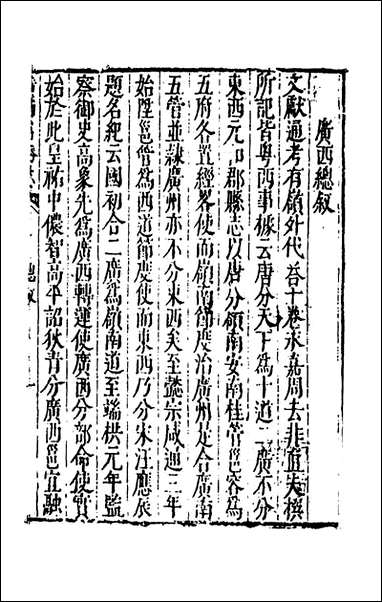 廣西總叙
文獻通考有嶺外代荅十卷永嘉周去非直夫撰
所記皆粤西事據云唐分天下爲十道二廣不分
東西元和郡縣志以唐分嶺南安南桂管邕容爲
五府各置經畧使而嶺南節度治廣州是合廣南
五管並隸廣州亦不分東西矣至懿宗咸通三年
始陞邕管爲西道節度使而東西乃分宋汪應辰
題名紀云國初合二廣爲嶺南道至端拱元年監
察御史高象先爲廣西轉運使廣西分部命使實
始於此皇祐中儂智高平詔狄青分廣西邕宜融
總叙